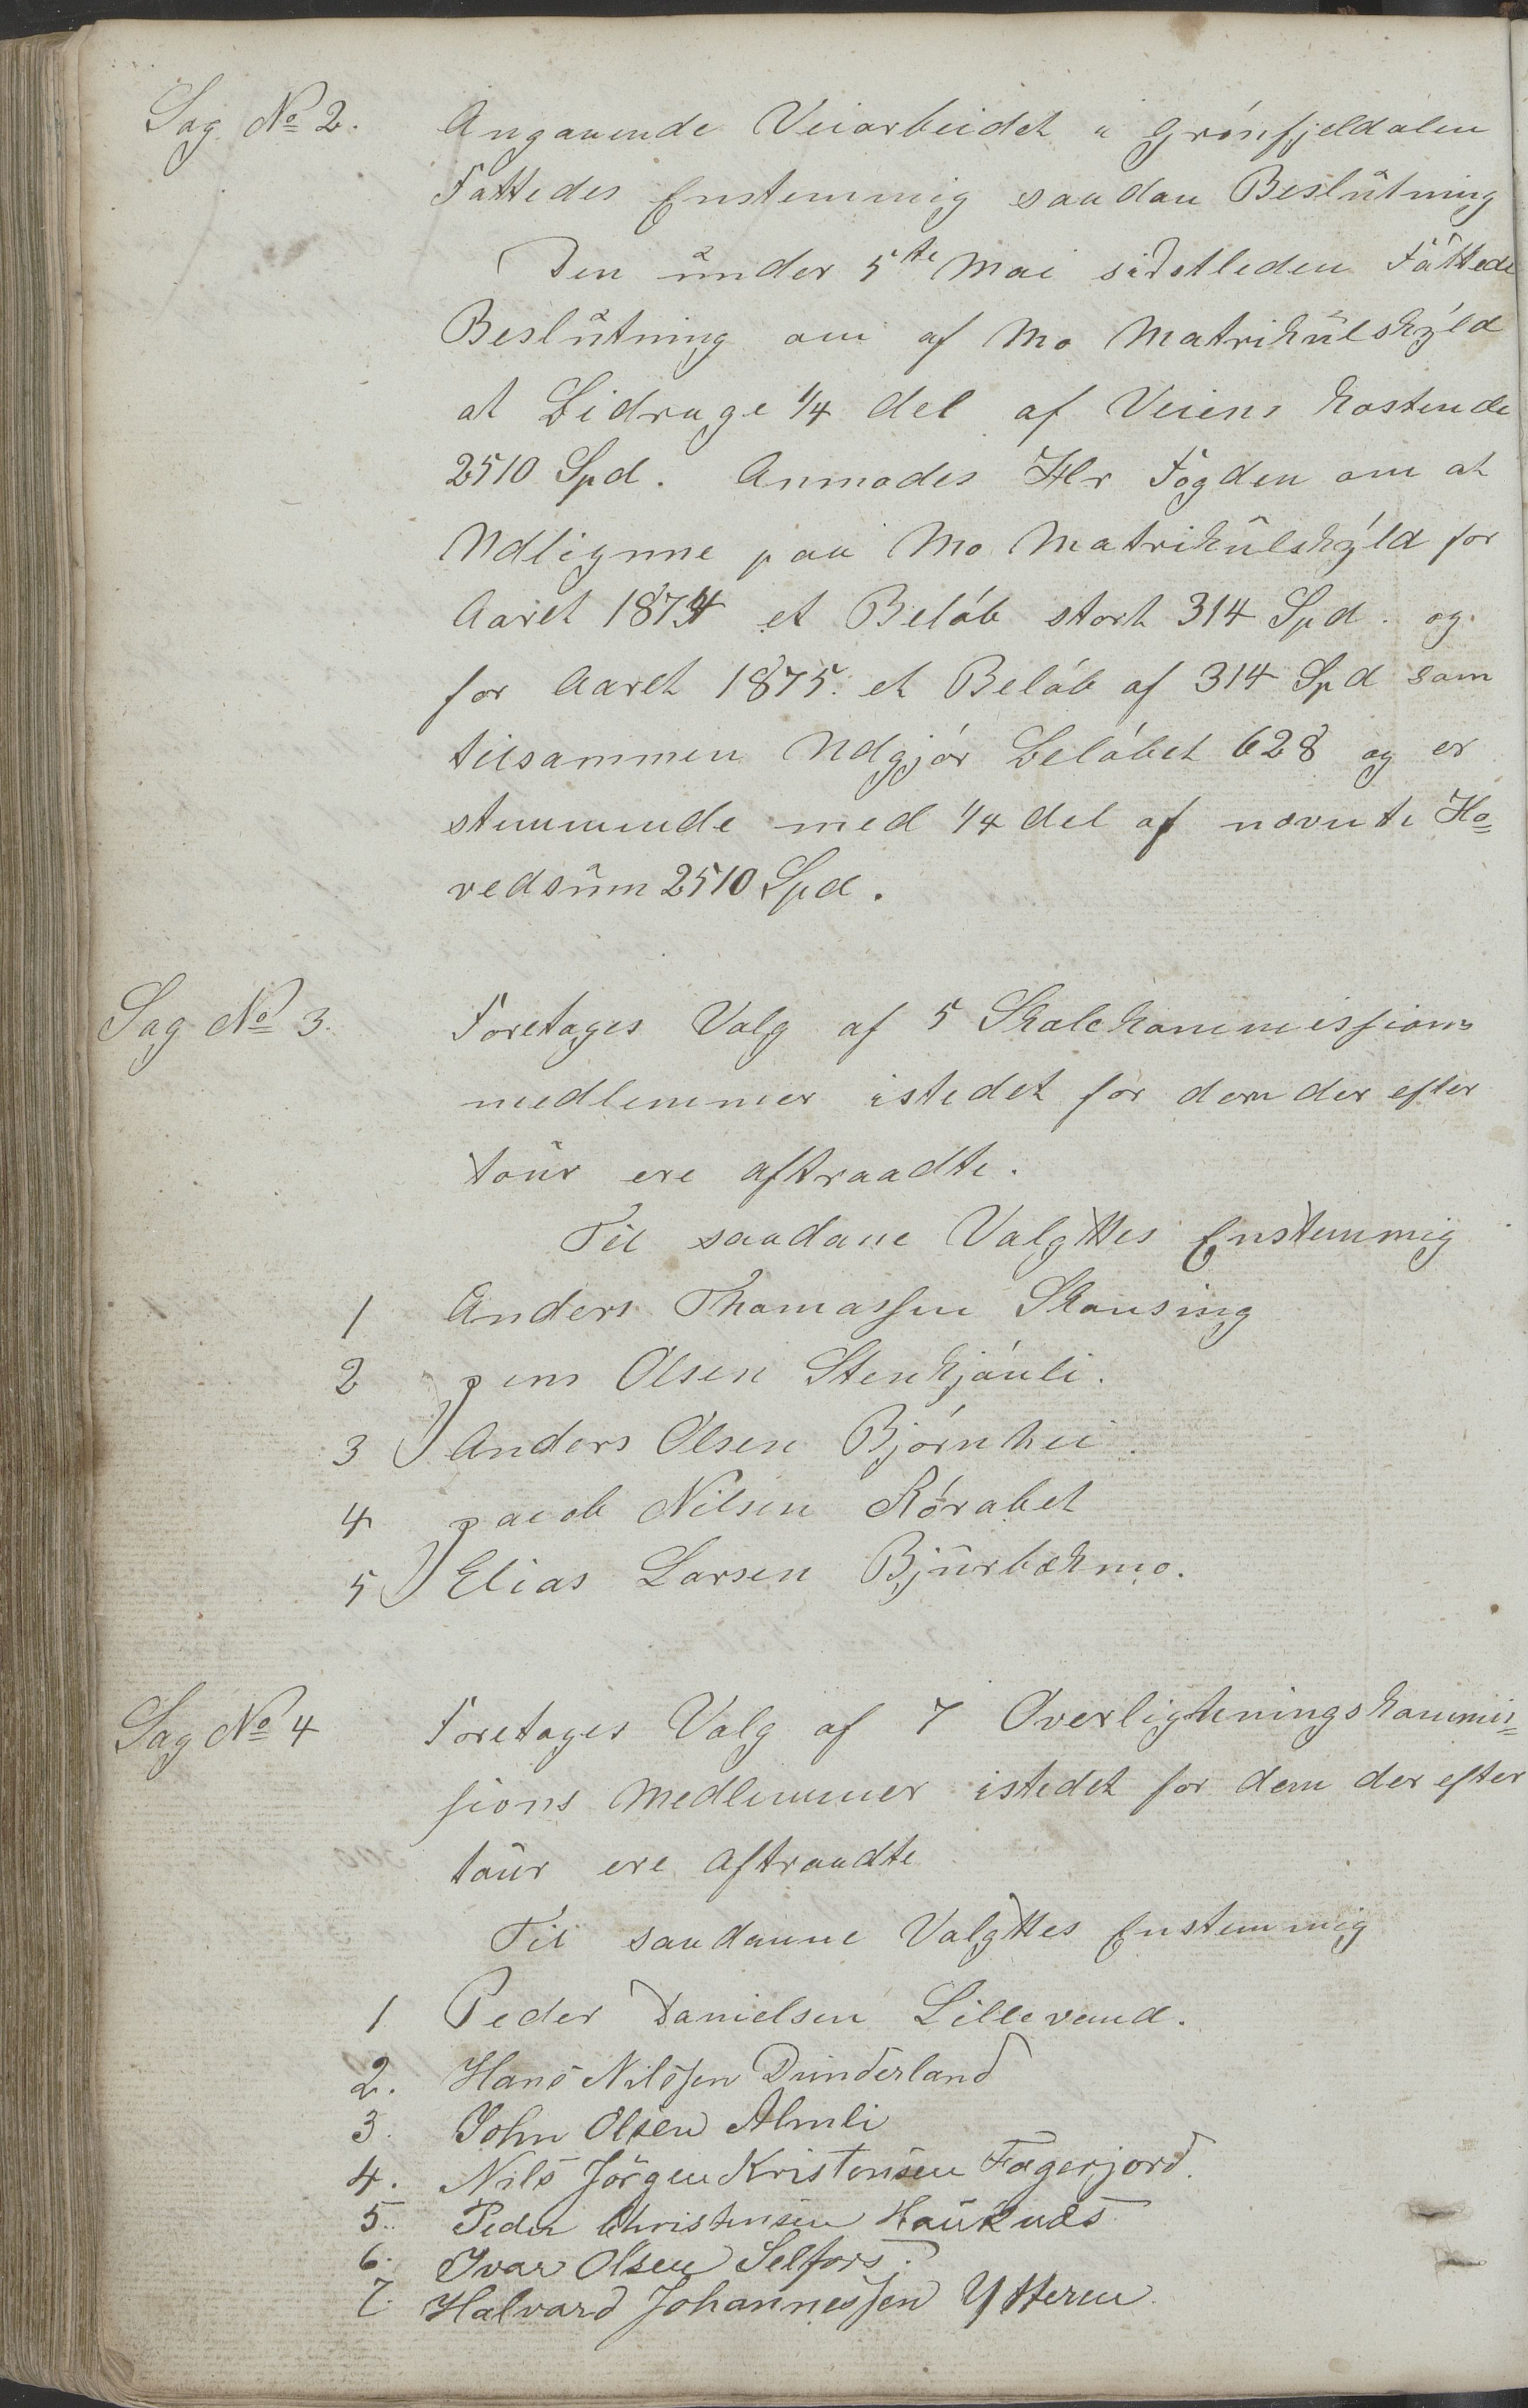 Sag No 2. Angaaende Veiarbeidet i Grönfjeldalen
Fattedes Enstemmig saadan Beslutning
Den under 5te Mai sidstleden Fattede
Beslutning om af Mo Matrikulskyld
at Bidrage 1/4 del af Veiens kostende
2510 Spd. Anmodes Hr Fogden om at
Udlignne paa Mo Matrikulskyld for
Aaret 1874 et Beløb stort 314 Spd. og
for Aaret 1875. et Beløb af 314 Spd som
tilsammen Udgjør Beløbet 628 og er
stemmende med 1/4 del af nævnte Ho=
vedsum 2510 Spd.
Sag No 3. Foretages Valg af 5 Skolekommissions
medlemmer istedet for dem der efter
tour ere aftraadte.
Til saadane Valgttes Enstemmig
1 Anders Thomassen Skonsing
2 Jens Olsen Stenkjønli.
3 Anders Olsen Bjørnhei.
4 Jacob Nilsen Rørabet
5 Elias Larsen Bjurbækmo.
Sag No 4 Foretages Valg af 7 Overligtningskommis=
sions Medlemmer istedet for dem der efter
tour ere Aftraadte
Til saadanne Valgttes Enstemmig
1 Peder Danielsen Lillevand.
2. Hans Nilssen Dunderland
3. John Olsen Almli
4. Nils Jörgen Kristensen Fagerjord.
5. Peder Christensen Hauknæs
6. Ivar Olsen Selfors.
7. Halvard Johannessen Ytteren.